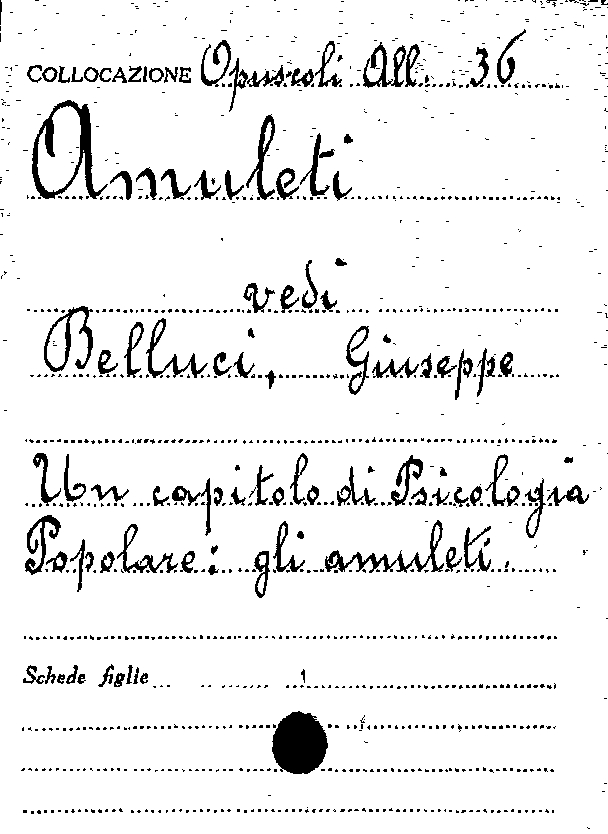 COLLOCAZIONE Opuscoli All. 36
Amuleti
vedi
Belluci, Giuseppe
Un capitolo di Psicologia
Popolare: gli amuleti.
Schede figlie 1